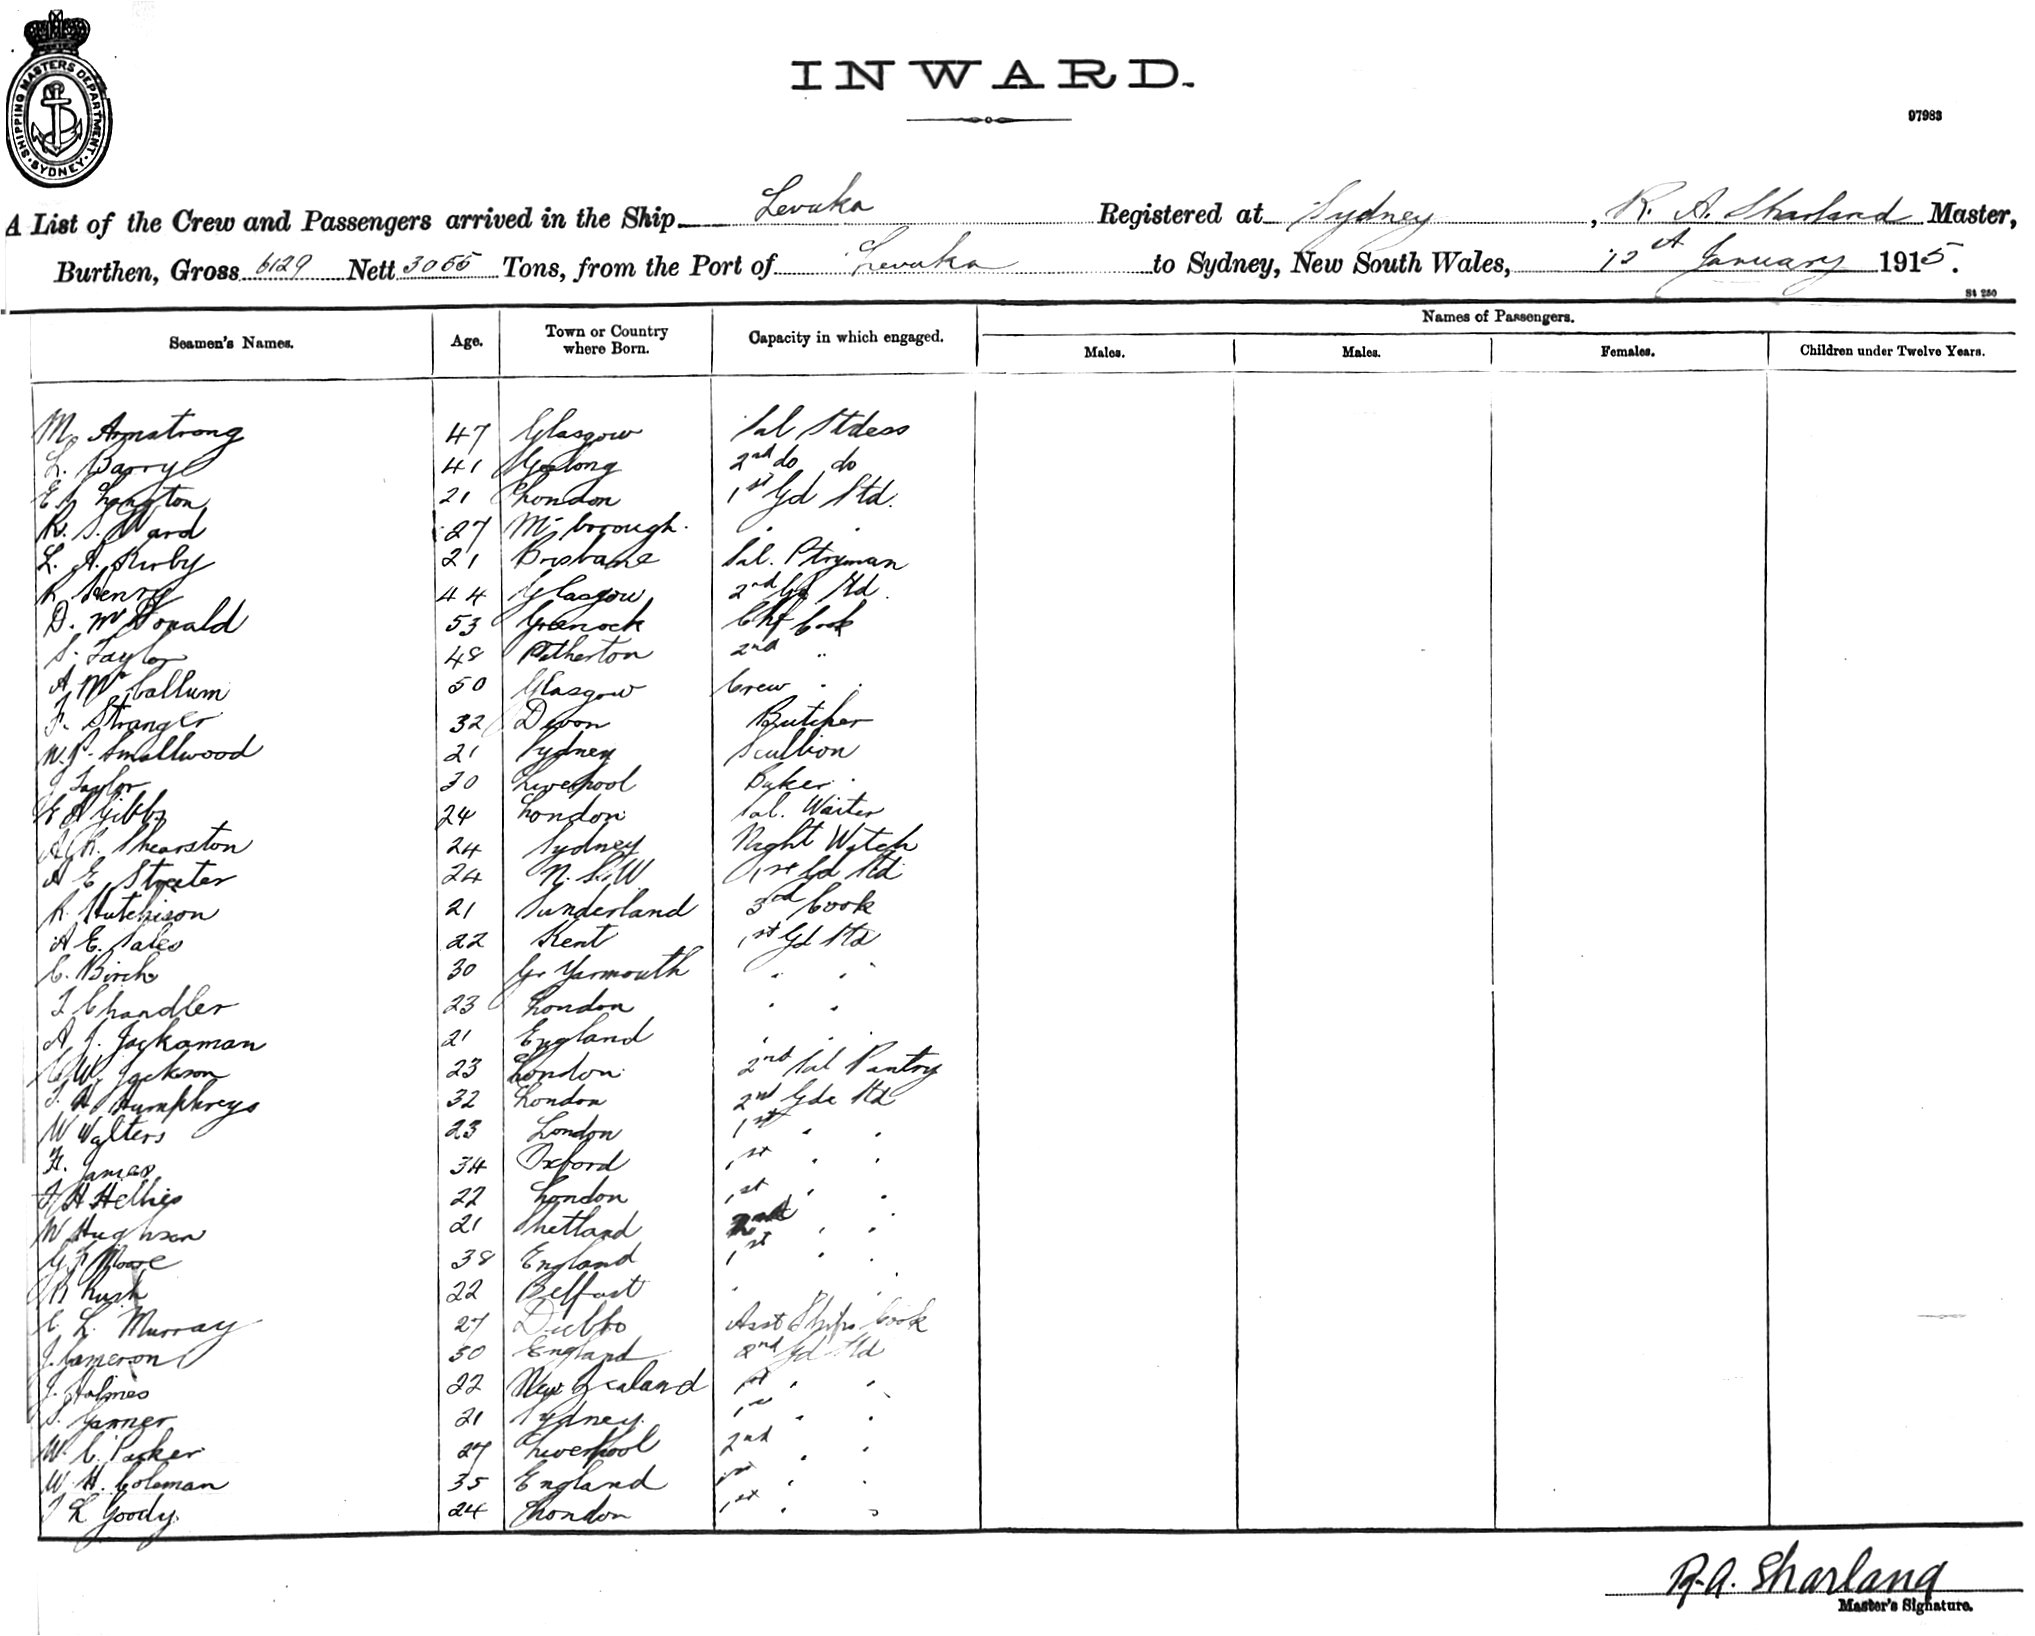 SHIPPING MASTERS DEPARTMENT · SYDNEY ·
INWARD.
97983
A List of the Crew and Passengers arrived in the Ship Levuka Registered at Sydney, R. A. Sharland Master,
Burthen, Gross 6129 Nett 3055 Tons, from the Port of Levuka to Sydney, New South Wales, January 1915.
St 250
Seamen's Names. Age. Town or Country where Born. Capacity in which engaged. Names of Passengers.
Males. Males. Females. Children under Twelve Years.
M. Armstrong 47 Glasgow Sal Stdess
L. Barry 41 Geelong 2nd do do
E Langton 21 London 1st Gd Std.
R. S. Ward 27 M'borough. " "
L. A. Kirby 21 Brisbane Sal. Ptryman
R Henry 44 Glasgow 2nd Gd Std.
D. McDonald 53 Greenock Chf Cook
S. Taylor 48 Petherton 2nd "
A McCallum 50 Glasgow Crew " "
F. Stranger 32 Devon Butcher
W. P. Smallwood 21 Sydney Scullion
J Taylor 30 Liverpool Baker
A Gibbs 24 London Sal. Waiter
A. R. Shearston 24 Sydney Night Watch
A E. Streeter 24 N.S.W. 1st Gd Std
R. Hutchison 21 Sunderland 3rd Cook
A E. Sales 22 Kent 1st Gd Std
C. Birch 30 Gr Yarmouth " "
F Chandler 23 London " "
A. J. Jackaman 21 England " "
C W. Jackson 23 London 2nd Sal Pantry
F. H. Humphreys 32 London 2nd Gde Std
W Walters 23 London 1st " "
H. James 34 Oxford 1st " "
F H Hellies 22 London 1st " "
W Hughson 21 Shetland 2nd " "
G F Moore 38 England 1st " "
R Rush 22 Belfast " "
E. L. Murray 27 Dubbo Asst Ships Cook
J. Cameron 30 England 2nd Gd Std
J. Holmes 22 New Zealand 1st " "
S. Garner 21 Sydney. 1st " "
W. C. Parker 27 Liverpool 2nd " "
W. H. Coleman 35 England 1st " "
F L Goody. 24 London 1st " "
R. A. Sharland
Master's Signature.